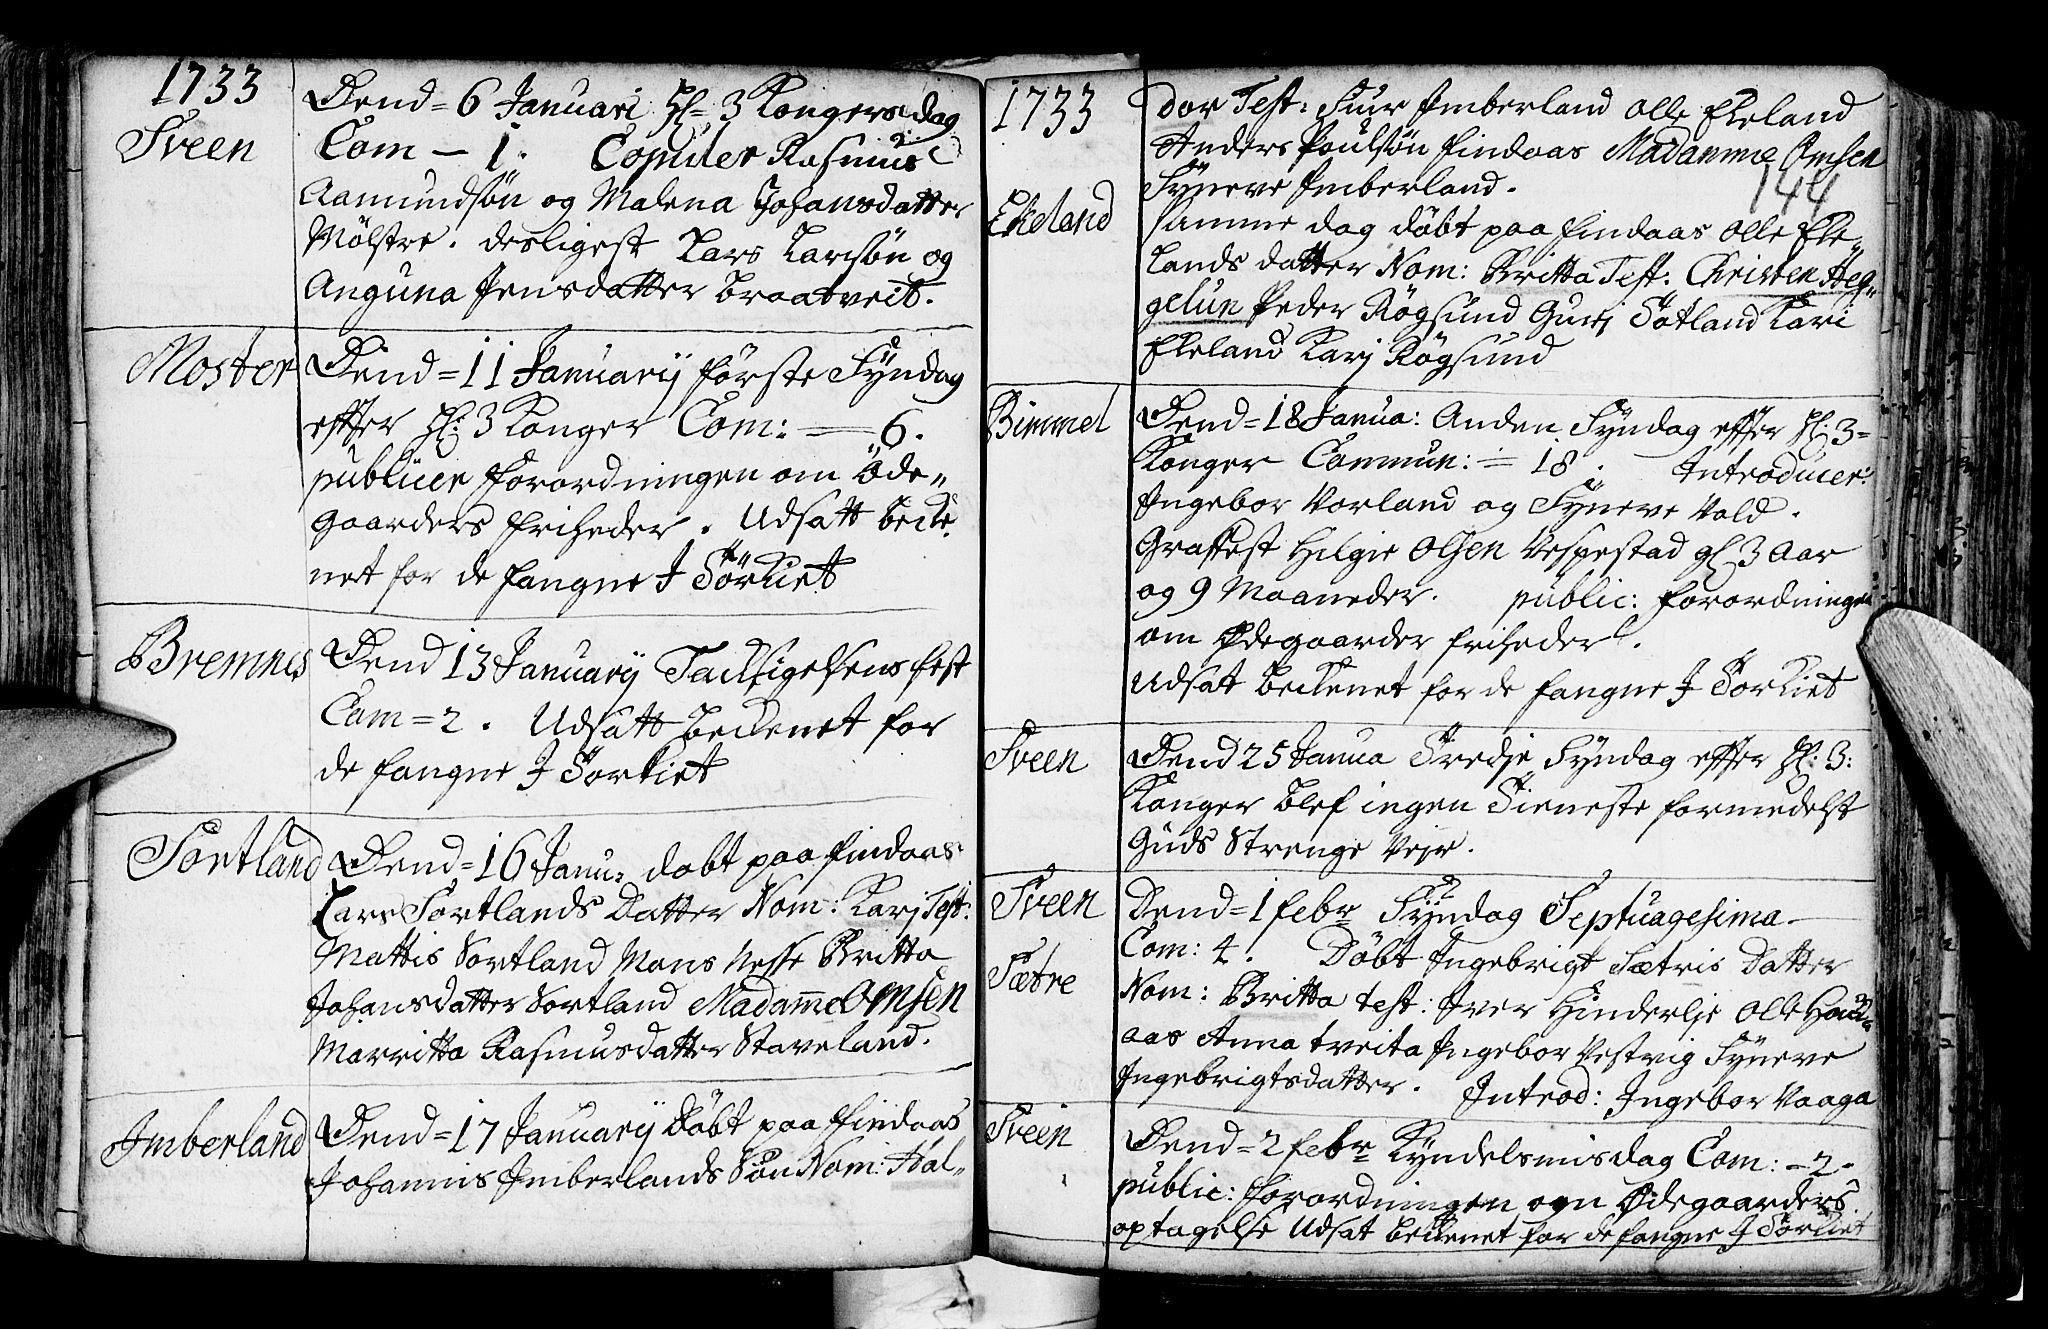 1733
Sveen
Dend = 6 Januari Hl= 3 Kongers dag
Com — 1. Copuler Rasmus
Aamundsøn og Malena Johansdatter
Mölstre. desligest Lars Larsøn og
Anguna Jensdatter Braatveit.
Moster
Dend = 11 Januarij förste Syndag
effter Hl: 3 Konger Com: — 6.
publicer forordningen om Öde„
gaarders friheder. Udsatt becke„
net for de fangne J Törkiet
Bremnes
Dend 13 Januarij Tacksigelsens fest
Com = 2. Udsatt beckenet for
de fangne J Torkiet
Sortland
Dend = 16 Janu: dobt paa findaas
Lars Sortlands Datter Nom: Karj Test:
Mattis Sortland Mons Nesse Britta
Johansdatter Sortland Madamme Omsen
Marritta Rasmusdatter Staveland.
Imberland
Dend = 17 Januarij Döbt paa findaas
Johannis Imberlands Sön Nom: Hal„
1733
dor Test: Siur Imberland Olle Ekeland
Anders Poulsön findaas Madamme Omsen
Syneve Imberland.
144
Ekeland
samme dag döbt paa findaas Olle Eke„
lands datter Nom: Britta Test: Christen Heg„
gelun Peder Rögsund Gurj Totland Kari
Ekeland Karj Rögsund
Bimmel
Dend = 18 Janua: Anden Syndag effter Hl: 3=
Konger Commun: = 18. Introducer:
Ingebor Vorland og Syneve Vold.
Graffest Helgie Olsen Vespestad gl 3 Aar
og 9 Maaneder. public: forordningen
om Ødegaarder friheder.
Udsat beckenet for de fangne J Torkiet
Sveen
Dend 25 Janua Tredje Syndag effter Hl: 3:
Konger blef ingen Tieneste formedelst
Guds Strenge Vejr.
Sveen
Dend = 1 febr Syndag Septuagesima
Com: 4. Döbt Ingebrigt Sætris Datter
Sætre
Nom: Britta test: Iver Hinderlje Olle Hou„
aas Anna tveita Ingebor Vestvig Syneve
Ingebrigtsdatter. Introd: Ingebor Vaaga
Sveen
Dend = 2 febr Kyndelsmisdag Com: — 2.
public: forordningen om Ødegaarders
optagelse Udsat beckenet for de fangne J Törkiet